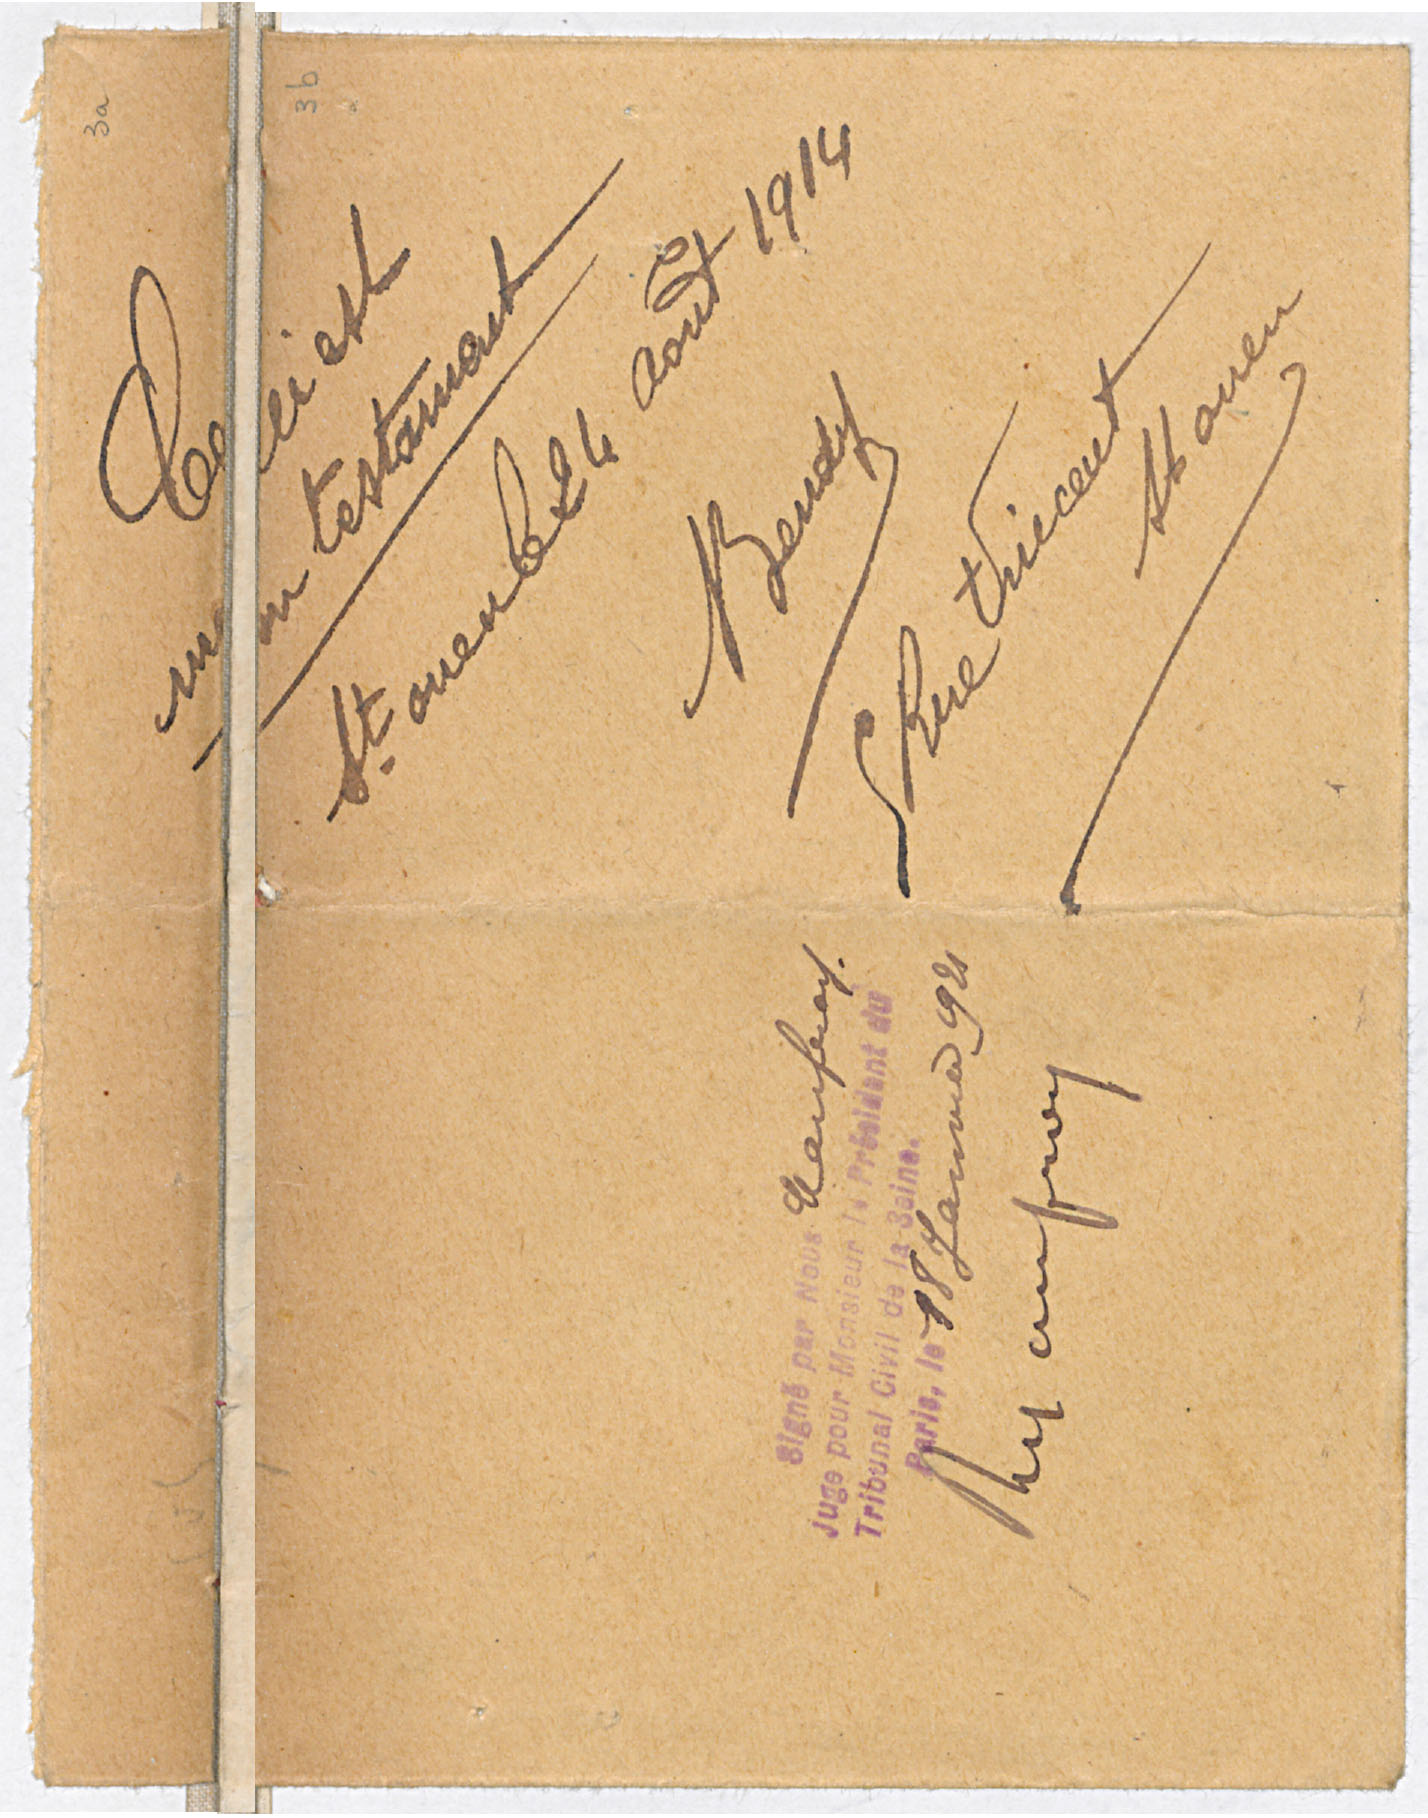 3a
3b
Ceci est
mon testament
St. ouen le 4 août 1914
Bendy
Rue Vincent
St ouen
Signé par Nous Maufroy.
Juge pour Monsieur le Président du
Tribunal Civil de la Seine.
Paris, le 18 Janvier 192
Maufroy